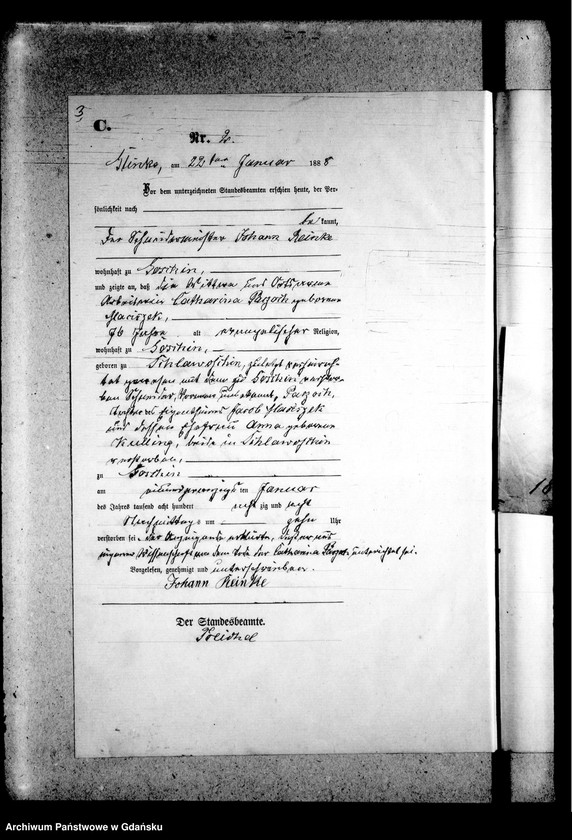 3
C.
Nr. 2.
am 22ten Januar 1888
Vor dem unterzeichneten Standesbeamten erschien heute, der Per-
sönlichkeit nach
be kannt,
Der Schneidermeister Johann Reinke
wohnhaft zu Goschin,
und zeigte an, daß die Wittwe und Ortsarme
Arbeiterin Catharina geborene
Maciszek,
96 Jahre alt evangelischer Religion,
wohnhaft zu Goschin,
geboren zu zuletzt verheirath-
et gewesen mit dem zu Goschin verstor-
ben Schneider, Vorname unbekannt,
Tochter des Eigenthümers Jacob Maciszek
und dessen Ehefrau Anna geborene
beide in
verstorben,
zu Goschin
am einundzwanzigsten Januar
des Jahres tausend acht hundert acht zig und acht
Nachmittags um zehn Uhr
verstorben sei. Der Anzeigende erklärte, daß er aus
eigener Wissenschaft von dem Tode der Catharina unterrichtet sei.
Vorgelesen, genehmigt und unterschrieben.
Johann Reinke
Der Standesbeamte.
18
Archiwum Państwowe w Gdańsku